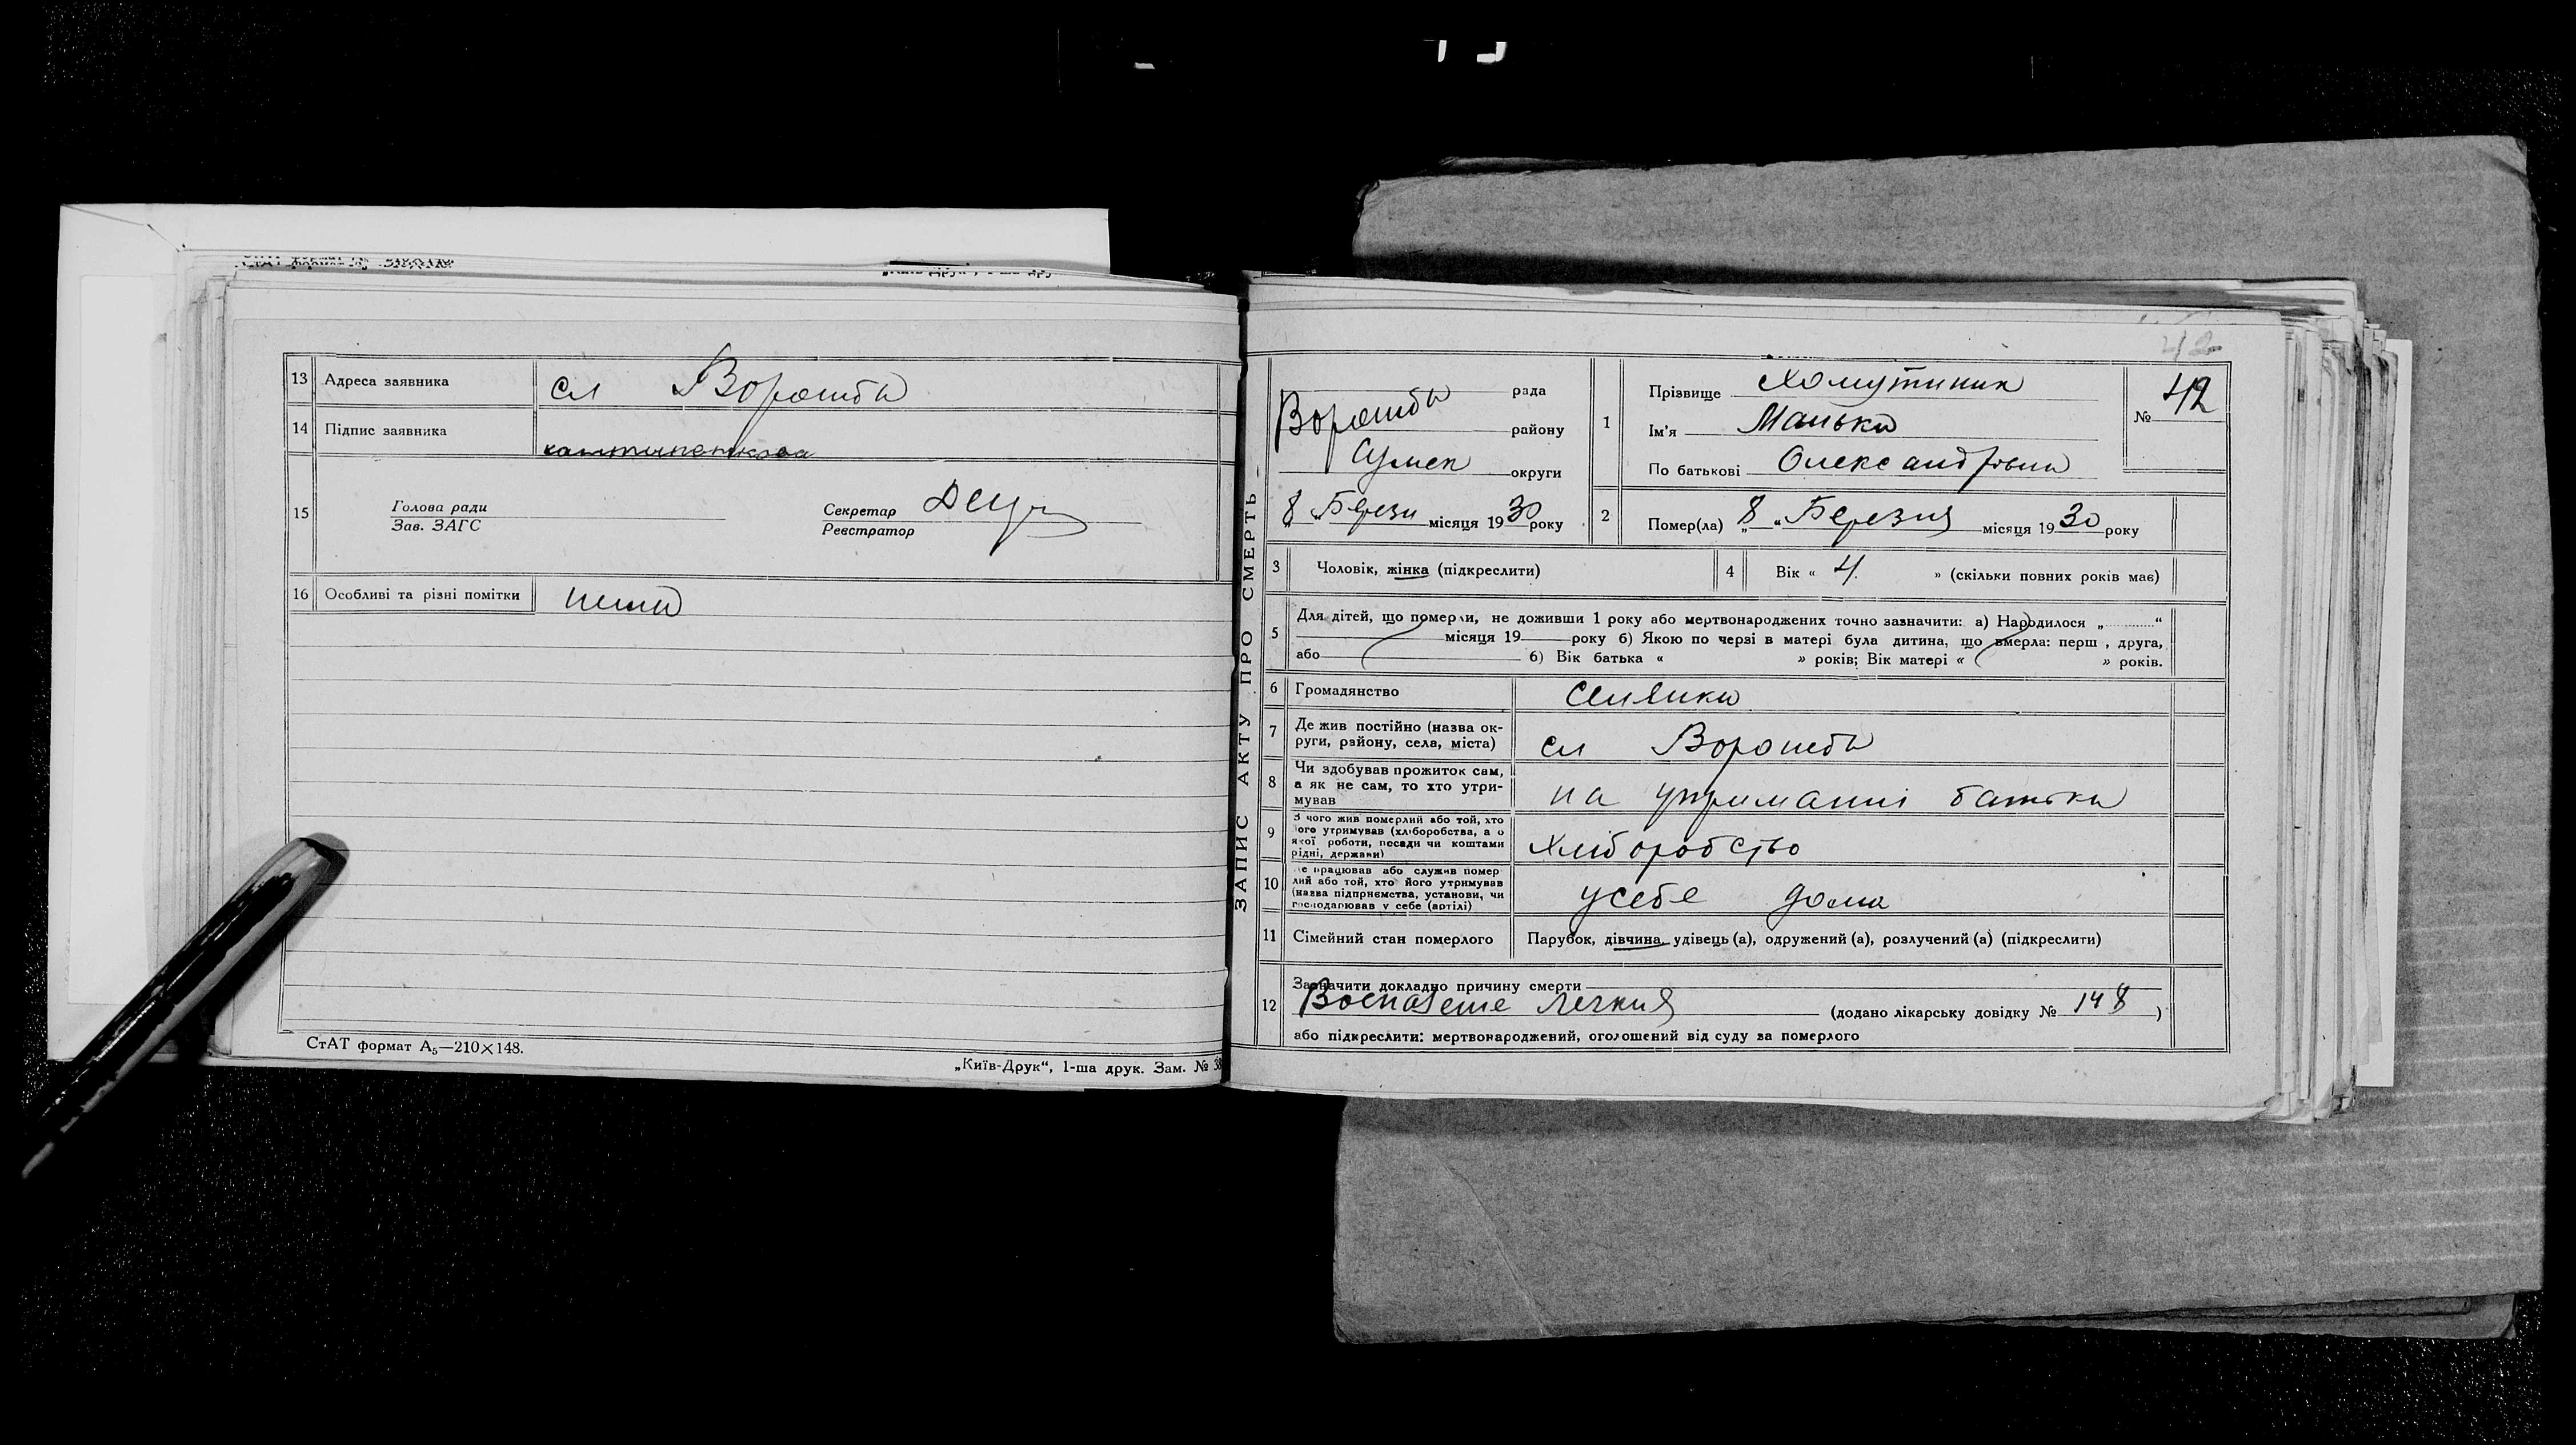 13 Адреса заявника сл Ворожба
14 Підпис заявника
15 Голова ради
Зав. ЗАГС
Секретар
Реєстратор
16 Особливі та різні помітки нема
СтАТ формат А₅—210×148.
„Київ-Друк“, 1-ша друк. Зам. № 38
ЗАПИС АКТУ ПРО СМЕРТЬ
42
рада
Ворожба району
Сумск округи
8 „ Березн місяця 1930 року
1 Прізвище Хомутиник
Ім'я Манька
По батькові Олександровна
№ 42
2 Помер(ла) „ 8 “ Березня місяця 1930 року
3 Чоловік, жінка (підкреслити)
4 Вік « 4 » (скільки повних років має)
5 Для дітей, що померли, не доживши 1 року або мертвонароджених точно зазначити: а) Народилося „ “
місяця 19 року б) Якою по черзі в матері була дитина, що вмерла: перш , друга,
або б) Вік батька « » років; Вік матері « » років.
6 Громадянство селянка
7 Де жив постійно (назва ок-
руги, району, села, міста) сл Ворожба
8 Чи здобував прожиток сам,
а як не сам, то хто утри-
мував на утриманні батька
9 З чого жив померлий або той, хто
його утримував (хліборобства, а о
якої роботи, посади чи коштами
рідні, держави) Хліборобство
10 Де працював або служив помер
лий або той, хто його утримував
(назва підприємства, установи, чи
господарював у себе (артілі) усебе дома
11 Сімейний стан померлого Парубок, дівчина, удівець (а), одружений (а), розлучений (а) (підкреслити)
12 Зазначити докладно причину смерти
Воспаление легких (додано лікарську довідку № 148 )
або підкреслити: мертвонароджений, оголошений від суду за померлого